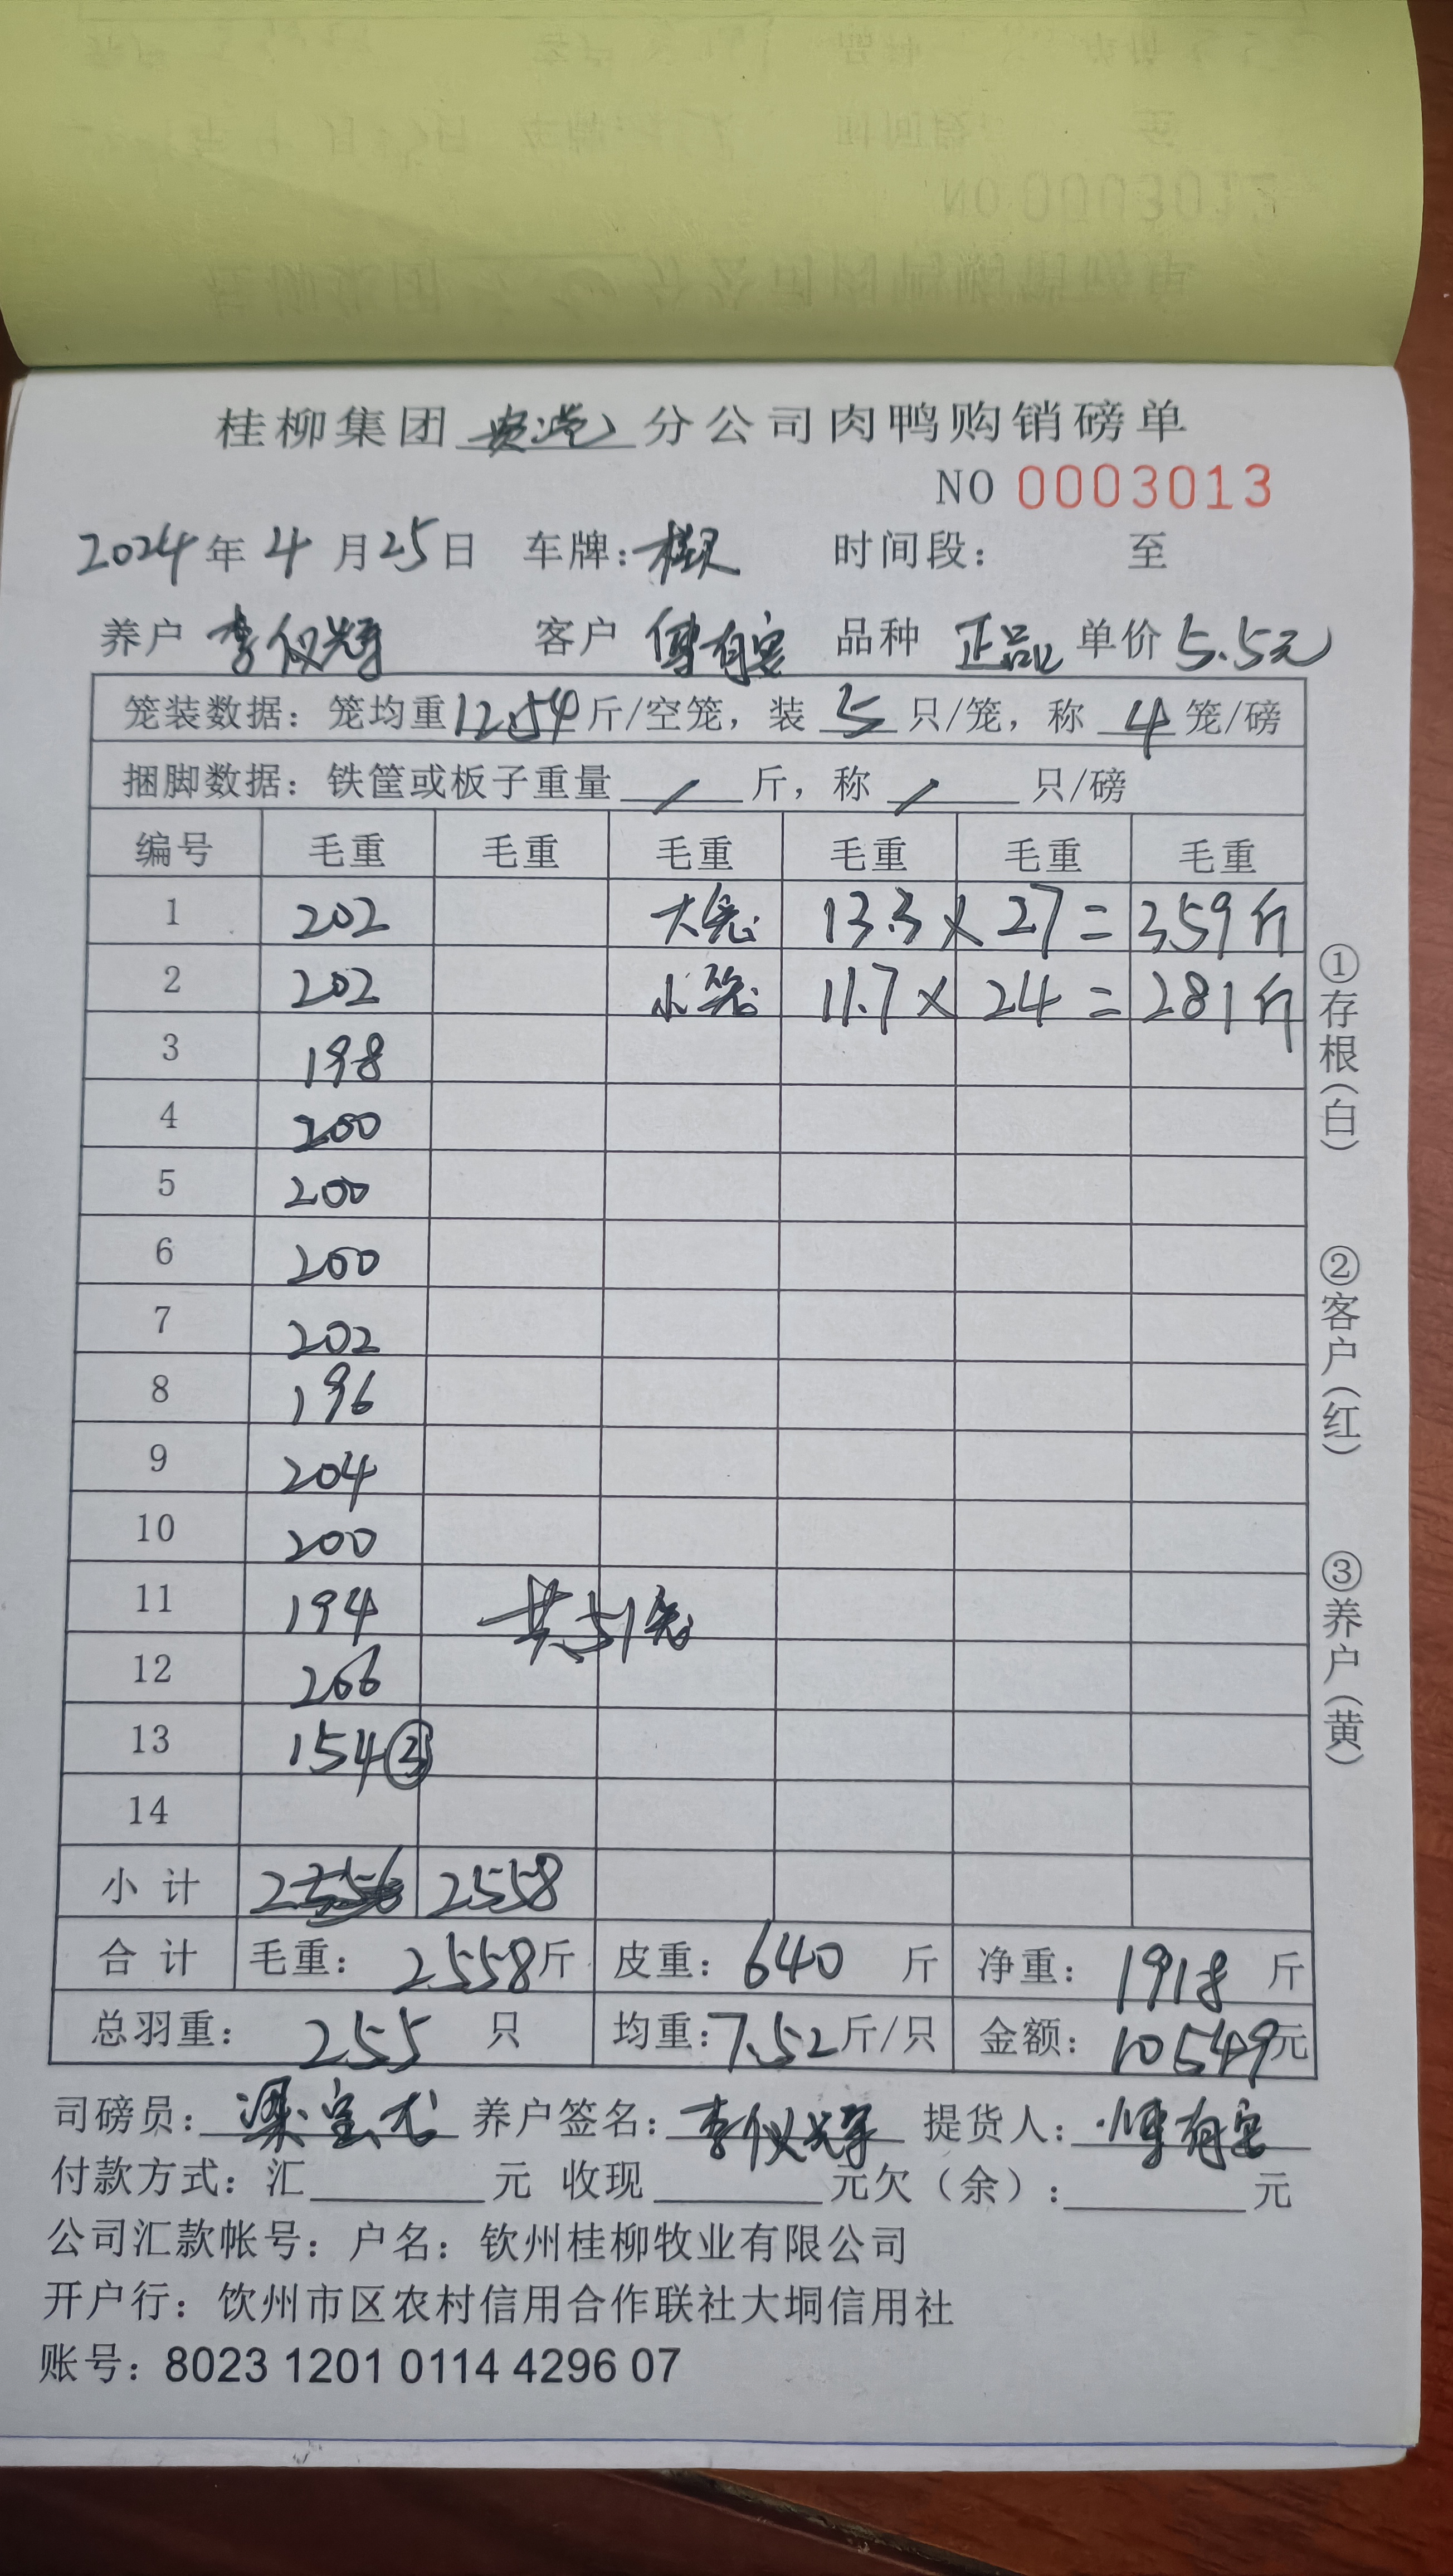 桂柳集团贵港分公司肉鸭购销磅单
NO 0003013
2024年4月25日 车牌: 时间段： 至
养户 李仪辉 客户 傅有宽 品种 正品 单价 5.5元
笼装数据：笼均重12.54斤/空笼，装5只/笼，称4笼/磅
捆脚数据：铁筐或板子重量/斤，称/只/磅
编号 毛重 毛重 毛重 毛重 毛重 毛重
1 202 大笼 13.3 × 27 = 359斤
2 202 小笼 11.7 × 24 = 281斤
3 198
4 200
5 200
6 200
7 202
8 196
9 204
10 200
11 194 共51笼
12 206
13 154③
14
小计 2558
合计 毛重：2558斤 皮重：640斤 净重：1918斤
总羽重：255只 均重：7.52斤/只 金额：10549元
司磅员：梁宝龙 养户签名：李仪辉 提货人：傅有宽
付款方式：汇 元 收现 元欠（余）： 元
公司汇款帐号：户名：钦州桂柳牧业有限公司
开户行：饮州市区农村信用合作联社大垌信用社
账号：8023 1201 0114 4296 07
①存根（白）
②客户（红）
③养户（黄）